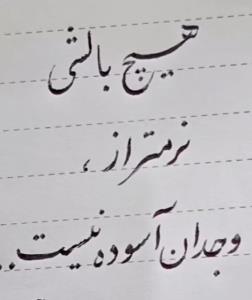 هیچ بالشی
نرمتر از ،
وجدان آسوده نیست..